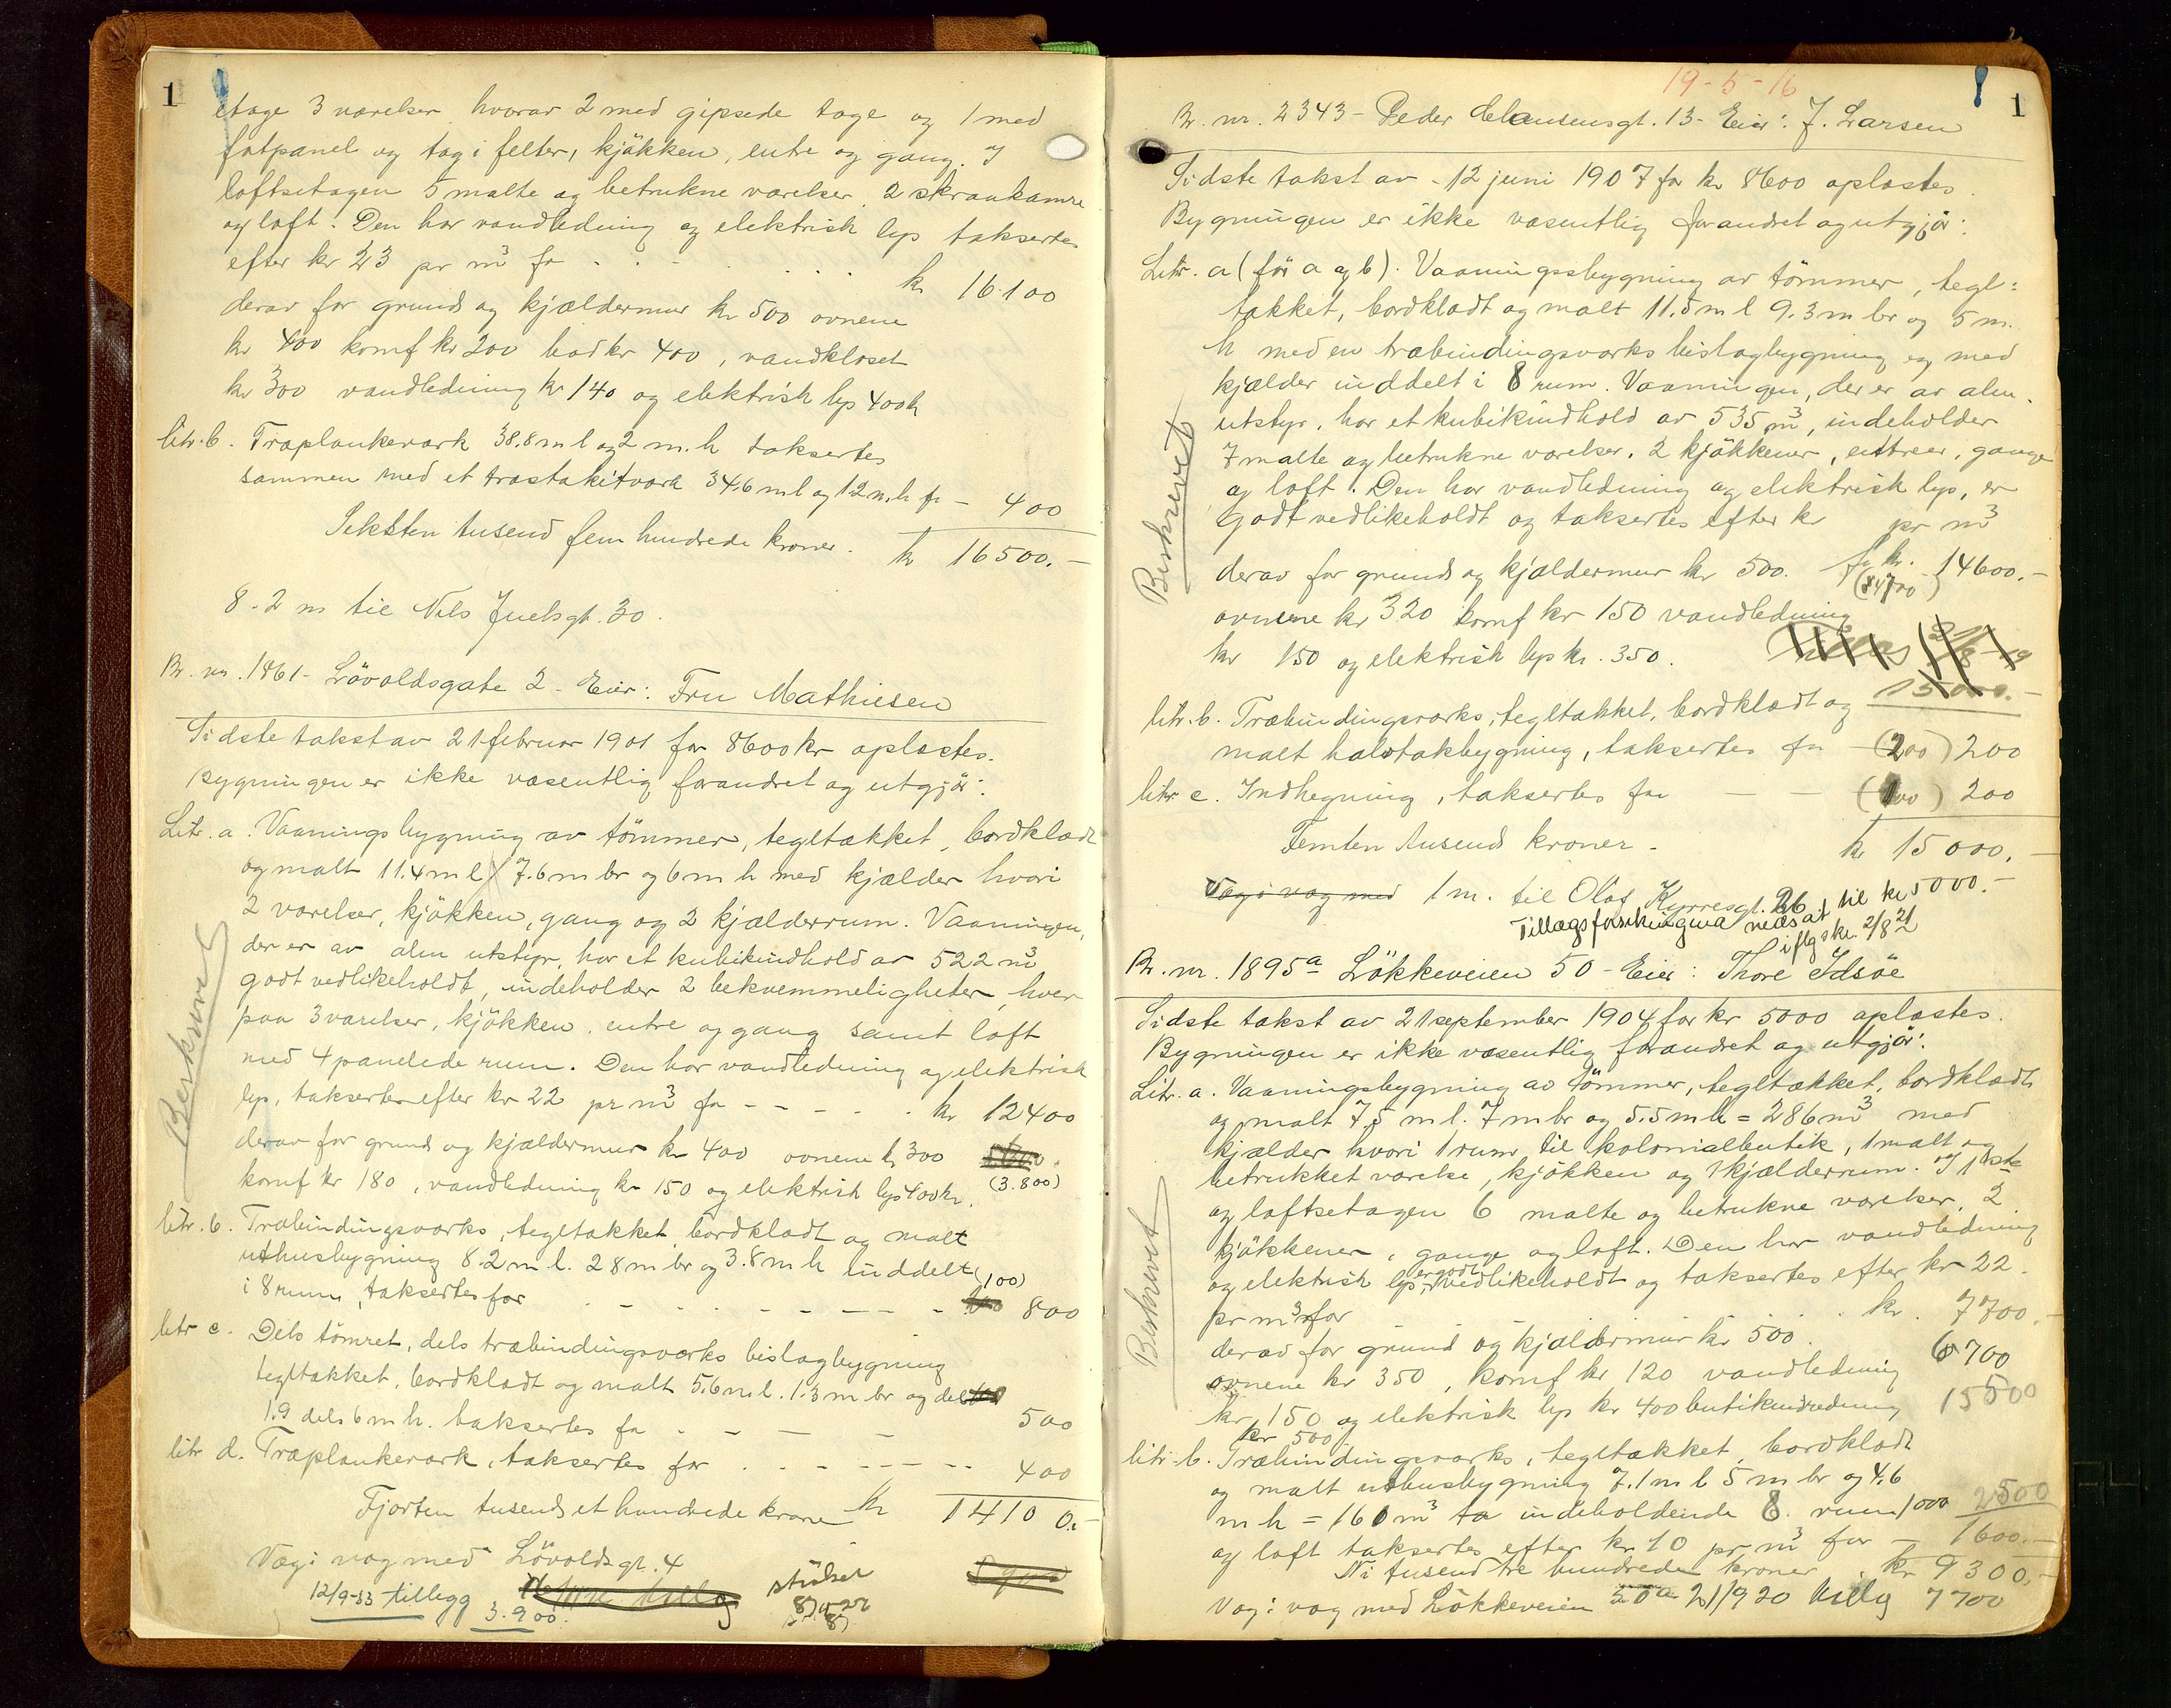 1
etage 3 værelser hvorav 2 med gipsede tage og 1 med
fatpanel og tag i felter, kjökken, entre og gang. I
loftsetagen 5 malte og betrukne værelser 2 skraakamre
og loft. Den har vandledning og elektrisk lys taksertes
efter kr 23 pr m³ for . . . . . . kr 16100
derav for grund og kjældermur kr 500 ovnene
kr 400 komf kr 200 bad kr 400, vandkloset
kr 300 vandledning kr 140 og elektrisk lys 400 kr
litr. b. Træplankeværk 38.8 m l og 2 m. h taksertes
sammen med et træstakitværk 34.6 m l og 1.2 m. h for - 400
Seksten tusend fem hundrede kroner. kr 16500.-
8-2 m til Nils Juelsgt. 30.
Br. nr. 1861- Lövoldsgate 2 - Eier: Fru Mathiesen
Sidste takst av 21 februar 1901 for 8600 kr oplæstes.
Bygningen er ikke væsentlig forandret og utgjör:
Litr. a. Vaaningsbygning av tömmer, tegltækket, bordklædt
og malt 11.4 m l 7.6 m br og 6 m h med kjælder hvori
2 værelser, kjökken, gang og 2 kjælderrum. Vaaningen,
der er av alm utstyr, har et kubikindhold av 522 m³
godt vedlikeholdt, indeholder 2 bekvemmeligheter, hver
paa 3 værelser, kjökken, entre og gang samt loft
med 4 panelede rum. Den har vandledning og elektrisk
lys, taksertes efter kr 22 pr m³ for - - - - - kr 12400
derav for grund og kjældermur kr 400 ovnene kr 300
komf kr 180, vandledning kr 150 og elektrisk lys 400 kr. (3.800)
Beskrevet
litr. b. Træbindingsværks, tegltækket, bordklædt og malt
uthusbygning 8.2 m l. 2.8 m br og 3.8 m h inddelt (100)
i 8 rum, taksertes for - - - - - - - 800
litr c. Dels tömret, dels træbindingsværks bislagbygning
tegltækket, bordklædt og malt 5.6 m l. 1.3 m br og dels
1.9 dels 6 m h. taksertes for - - - - 500
litr d. Træplankeværk, taksertes for - - - - - 400
Fjorten tusend et hundrede kroner kr 14100.-
Væg i væg med Lövoldsgt. 4
12/9-33 tillegg 3.900.
19-5-16
1
Br. nr. 2343 - Peder Clausensgt. 13 - Eier: J. Larsen
Sidste takst av 12 juni 1907 for kr 8600 oplæstes.
Bygningen er ikke væsentlig forandret og utgjör:
Litr. a (för a og b). Vaaningsbygning av tömmer, tegl=
tækket, bordklædt og malt 11.5 m l 9.3 m br og 5 m.
h med en træbindingsværks bislagbygning og med
kjælder inddelt i 8 rum. Vaaningen, der er av alm.
utstyr, har et kubikindhold av 535 m³, indeholder
7 malte og betrukne værelser, 2 kjökkener, entreer, gange
og loft. Den har vandledning og elektrisk lys, er
godt vedlikeholdt og taksertes efter kr pr m³
for kr. 14600.-
derav for grund og kjældermur kr 500.
ovnene kr 320 komf kr 150 vandledning
kr 150 og elektrisk lys kr. 350.
Beskrevet
litr. b. Træbindingsværks, tegltækket, bordklædt og
malt halvtakbygning, taksertes for - (200) 200
litr c. Indhegning, taksertes for - - (100) 200
Femten tusend kroner - kr 15000.-
Væg i væg med 1 m. til Olaf Kyrresgt. 26
Tillægsforsikringen nedsat til kr 5000.-
iflg skr. 2/8 21
Br. nr. 1895a Lökkeveien 50 - Eier: Thore Idsöe
Sidste takst av 21 september 1904 for kr 5000 oplæstes.
Bygningen er ikke væsentlig forandret og utgjör:
Litr. a. Vaaningsbygning av tömmer, tegltækket, bordklædt
og malt 7.5 m l. 7 m br og 5.5 m h = 286 m³ med
kjælder hvori 1 rum til kolonialbutik, 1 malt og
betrukket værelse, kjökken og 1 kjælderrum. I 1ste
og loftsetagen 6 malte og betrukne værelser, 2
kjökkener, gange og loft. Den har vandledning
og elektrisk lys, er godt vedlikeholdt og taksertes efter kr 22.
pr m³ for . . . . kr. 7700.-
derav for grund og kjældermur kr 500. 6700
ovnene kr 350, komf kr 120 vandledning
kr 150 og elektrisk lys kr 400 butikindredning 15500
kr 500.
Beskrevet
litr. b. Træbindingsværks, tegltækket, bordklædt
og malt uthusbygning 7.1 m l 5 m br og 4.6
m h = 160 m³ indeholdende 8 rum 1000 2500
og loft taksertes efter kr 10 pr m³ for - 1600.-
Ni tusend tre hundrede kroner . kr 9300.-
Væg i væg med Lökkeveien 50a 7700